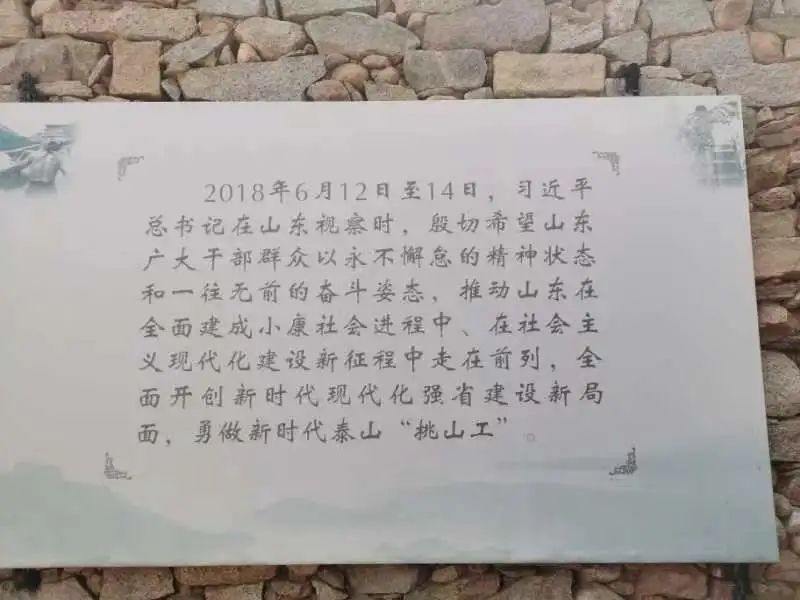 2018年6月12日至14日，习近平
总书记在山东视察时，殷切希望山东
广大干部群众以永不懈怠的精神状态
和一往无前的奋斗姿态，推动山东在
全面建成小康社会进程中、在社会主
义现代化建设新征程中走在前列，全
面开创新时代现代化强省建设新局
面，勇做新时代泰山“挑山工”。